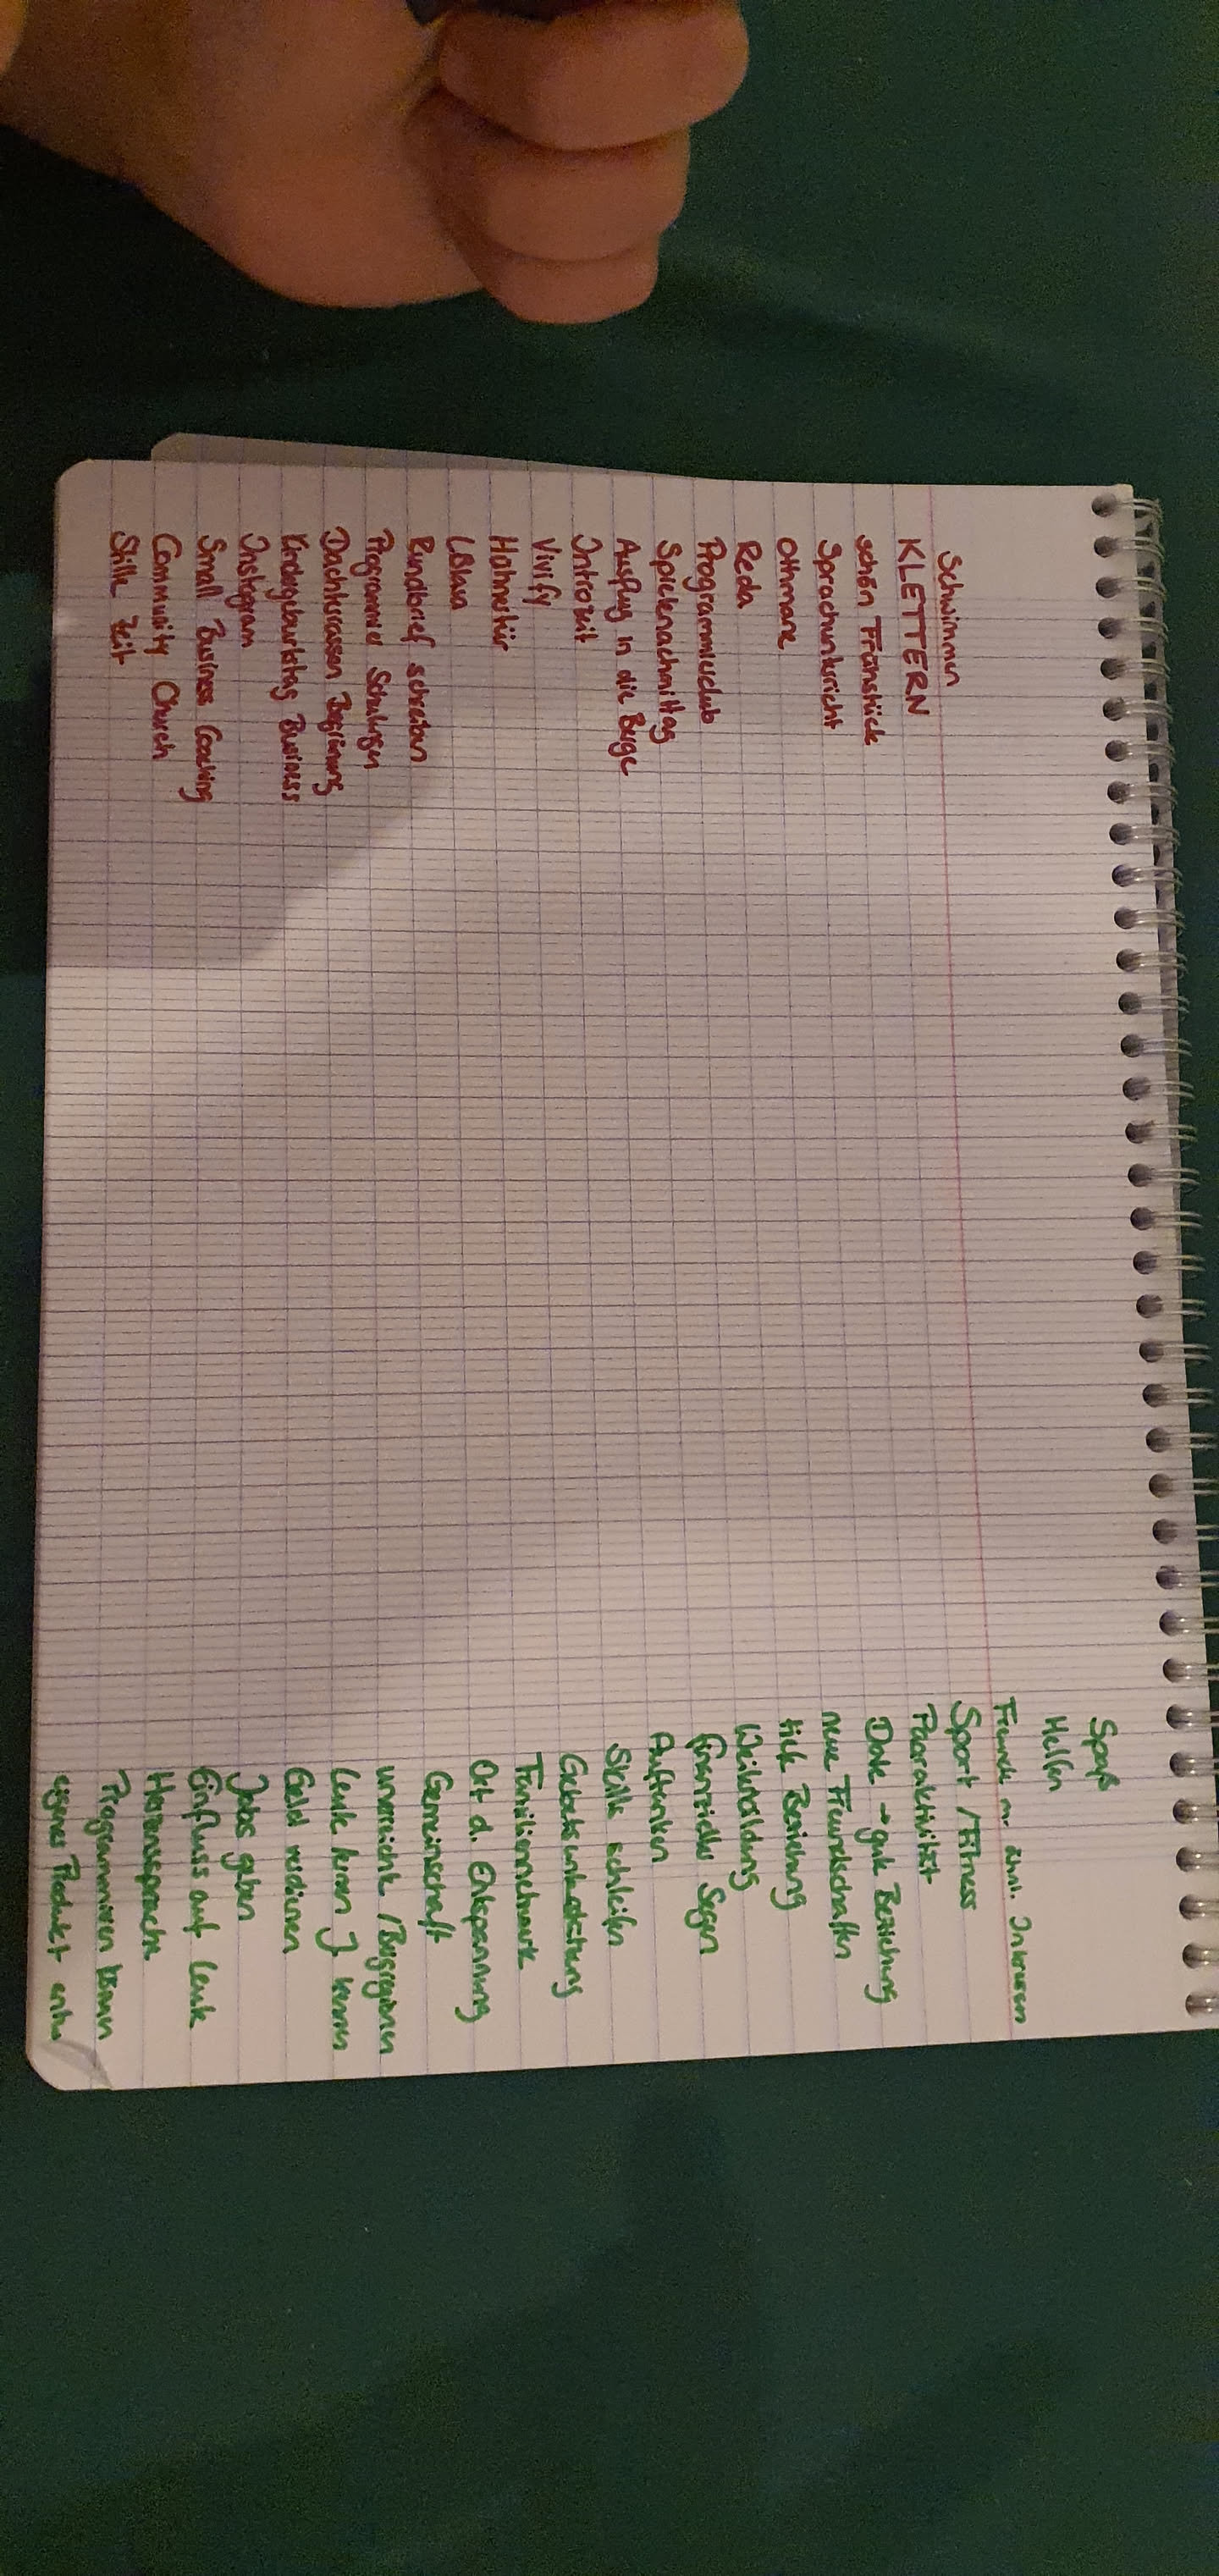 Schwimmen
KLETTERN
schön Frühstück
Sprachunterricht
Othmane
Reda
Programmierclub
Spielenachmittag
Ausflug in die Berge
Introzeit
Vivify
Hohnestür
Rundbrief schreiben
Programmier Schulungen
Dachterrassen Begrünung
Kindergeburtstag Business
Instagram
Small Business Coaching
Community Church
Stille Zeit
Spaß
Helfen
Freunde m. ähnl. Interessen
Sport / Fitness
Paaraktivität
Date → gute Beziehung
neue Freundschaften
tiefe Beziehung
Weiterbildung
finanzielle Segen
Auftanken
Skills schleifen
Gebetsunterstützung
Familienchawk
Ort d. Entspannung
Gemeinschaft
unerreichte /
Leute lernen J kennen
Geld verdienen
Jobs geben
Einfluss auf Leute
Herzenssprache
Programmieren können
eigenes Produkt